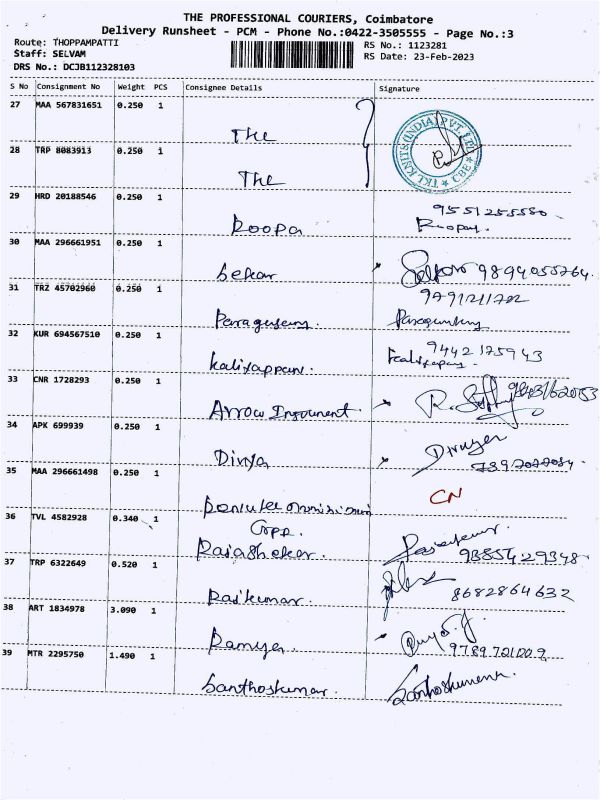 THE PROFESSIONAL COURIERS, Coimbatore
Delivery Runsheet - PCM - Phone No.:0422-3505555 - Page No.:3
Route: THOPPAMPATTI
Staff: SELVAM
DRS No.: DCJB112328103
RS No.: 1123281
RS Date: 23-Feb-2023
S No Consignment No Weight PCS Consignee Details Signature
27 MAA 567831651 0.250 1
The
TKL KNITS (INDIA) PVT. LTD CBE
28 TRP 8083913 0.250 1
The
29 HRD 20188546 0.250 1
Roopa
9551255580
30 MAA 296661951 0.250 1
Sekar
9894055764
31 TRZ 45702960 0.250 1
9791211702
32 KUR 694567510 0.250 1
Kaliyappan.
9442175943
33 CNR 1728293 0.250 1
Arrow
34 APK 699939 0.250 1
Divya
35 MAA 296661498 0.250 1
CN
36 TVL 4582928 0.340 1
Rajashekar.
9385429348
37 TRP 6322649 0.520 1
Rajkumar.
8682864632
38 ART 1834978 3.090 1
Ramya.
39 MTR 2295750 1.490 1
Santhoskumar.